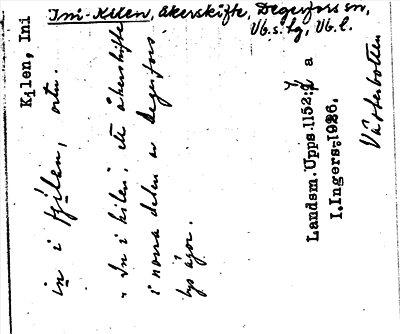 Ini-Kilen, åkerskifte, Degerfors sn,
Vb. s. hg, Vb. l.
Kilen, Ini
in i kjilən, ortn.
"In i kilen", ett åkerskifte
i norra delen av Degerfors
bys ägor.
Landsm. Upps. 1152: a
I. Ingers. 1926.
Västerbotten